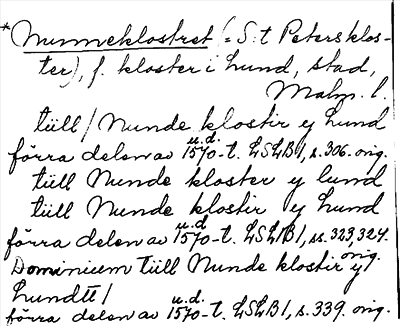 *Nunneklostret (= S:t Petersklos-
ter), f. kloster i Lund, stad,
Malm. l.
tüll / Nunde klostir ÿ Lund
u.d.
förra delen av 1570-t. LSLB1, s. 306. orig.
tüll Nunde kloster ÿ lund
tüll Nunde klostir ÿ Lund
u.d.
förra delen av 1570-t. LSLB1, ss. 323,324.
orig.
Dominium tüll Nunde klostir ÿ
Lundtt/
u.d.
förra delen av 1570-t. LSLB1, s. 339. orig.